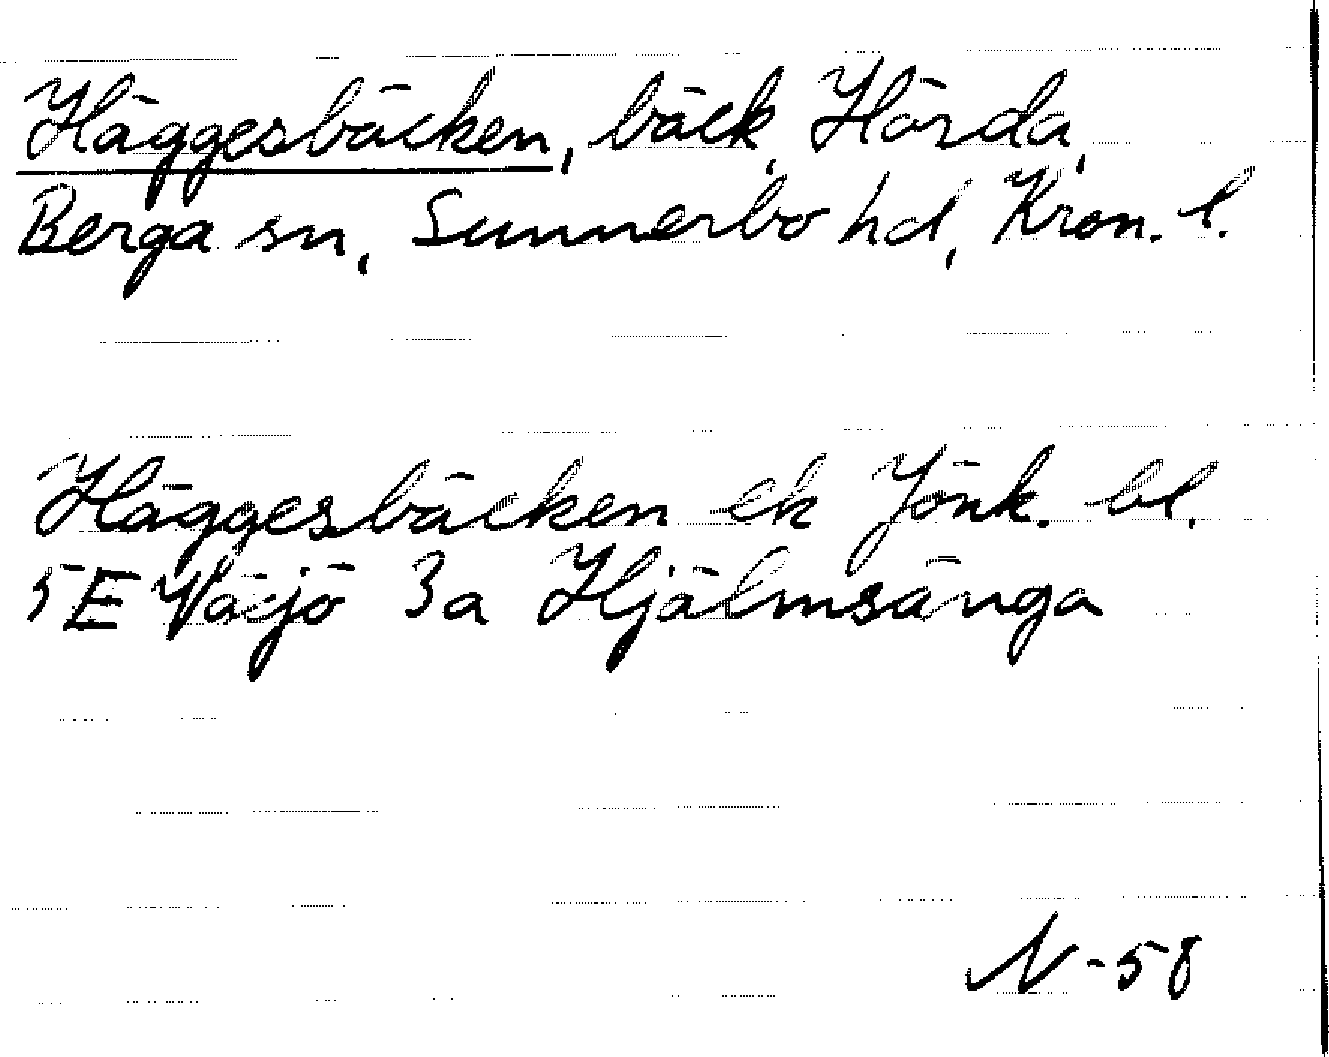 Häggesbäcken, bäck, Hörda,
Berga sn, Sunnerbo hd, Kron. l.
Häggesbäcken ek Jönk. bl.
5E Växjö 3a Hjälmsänga
N-58